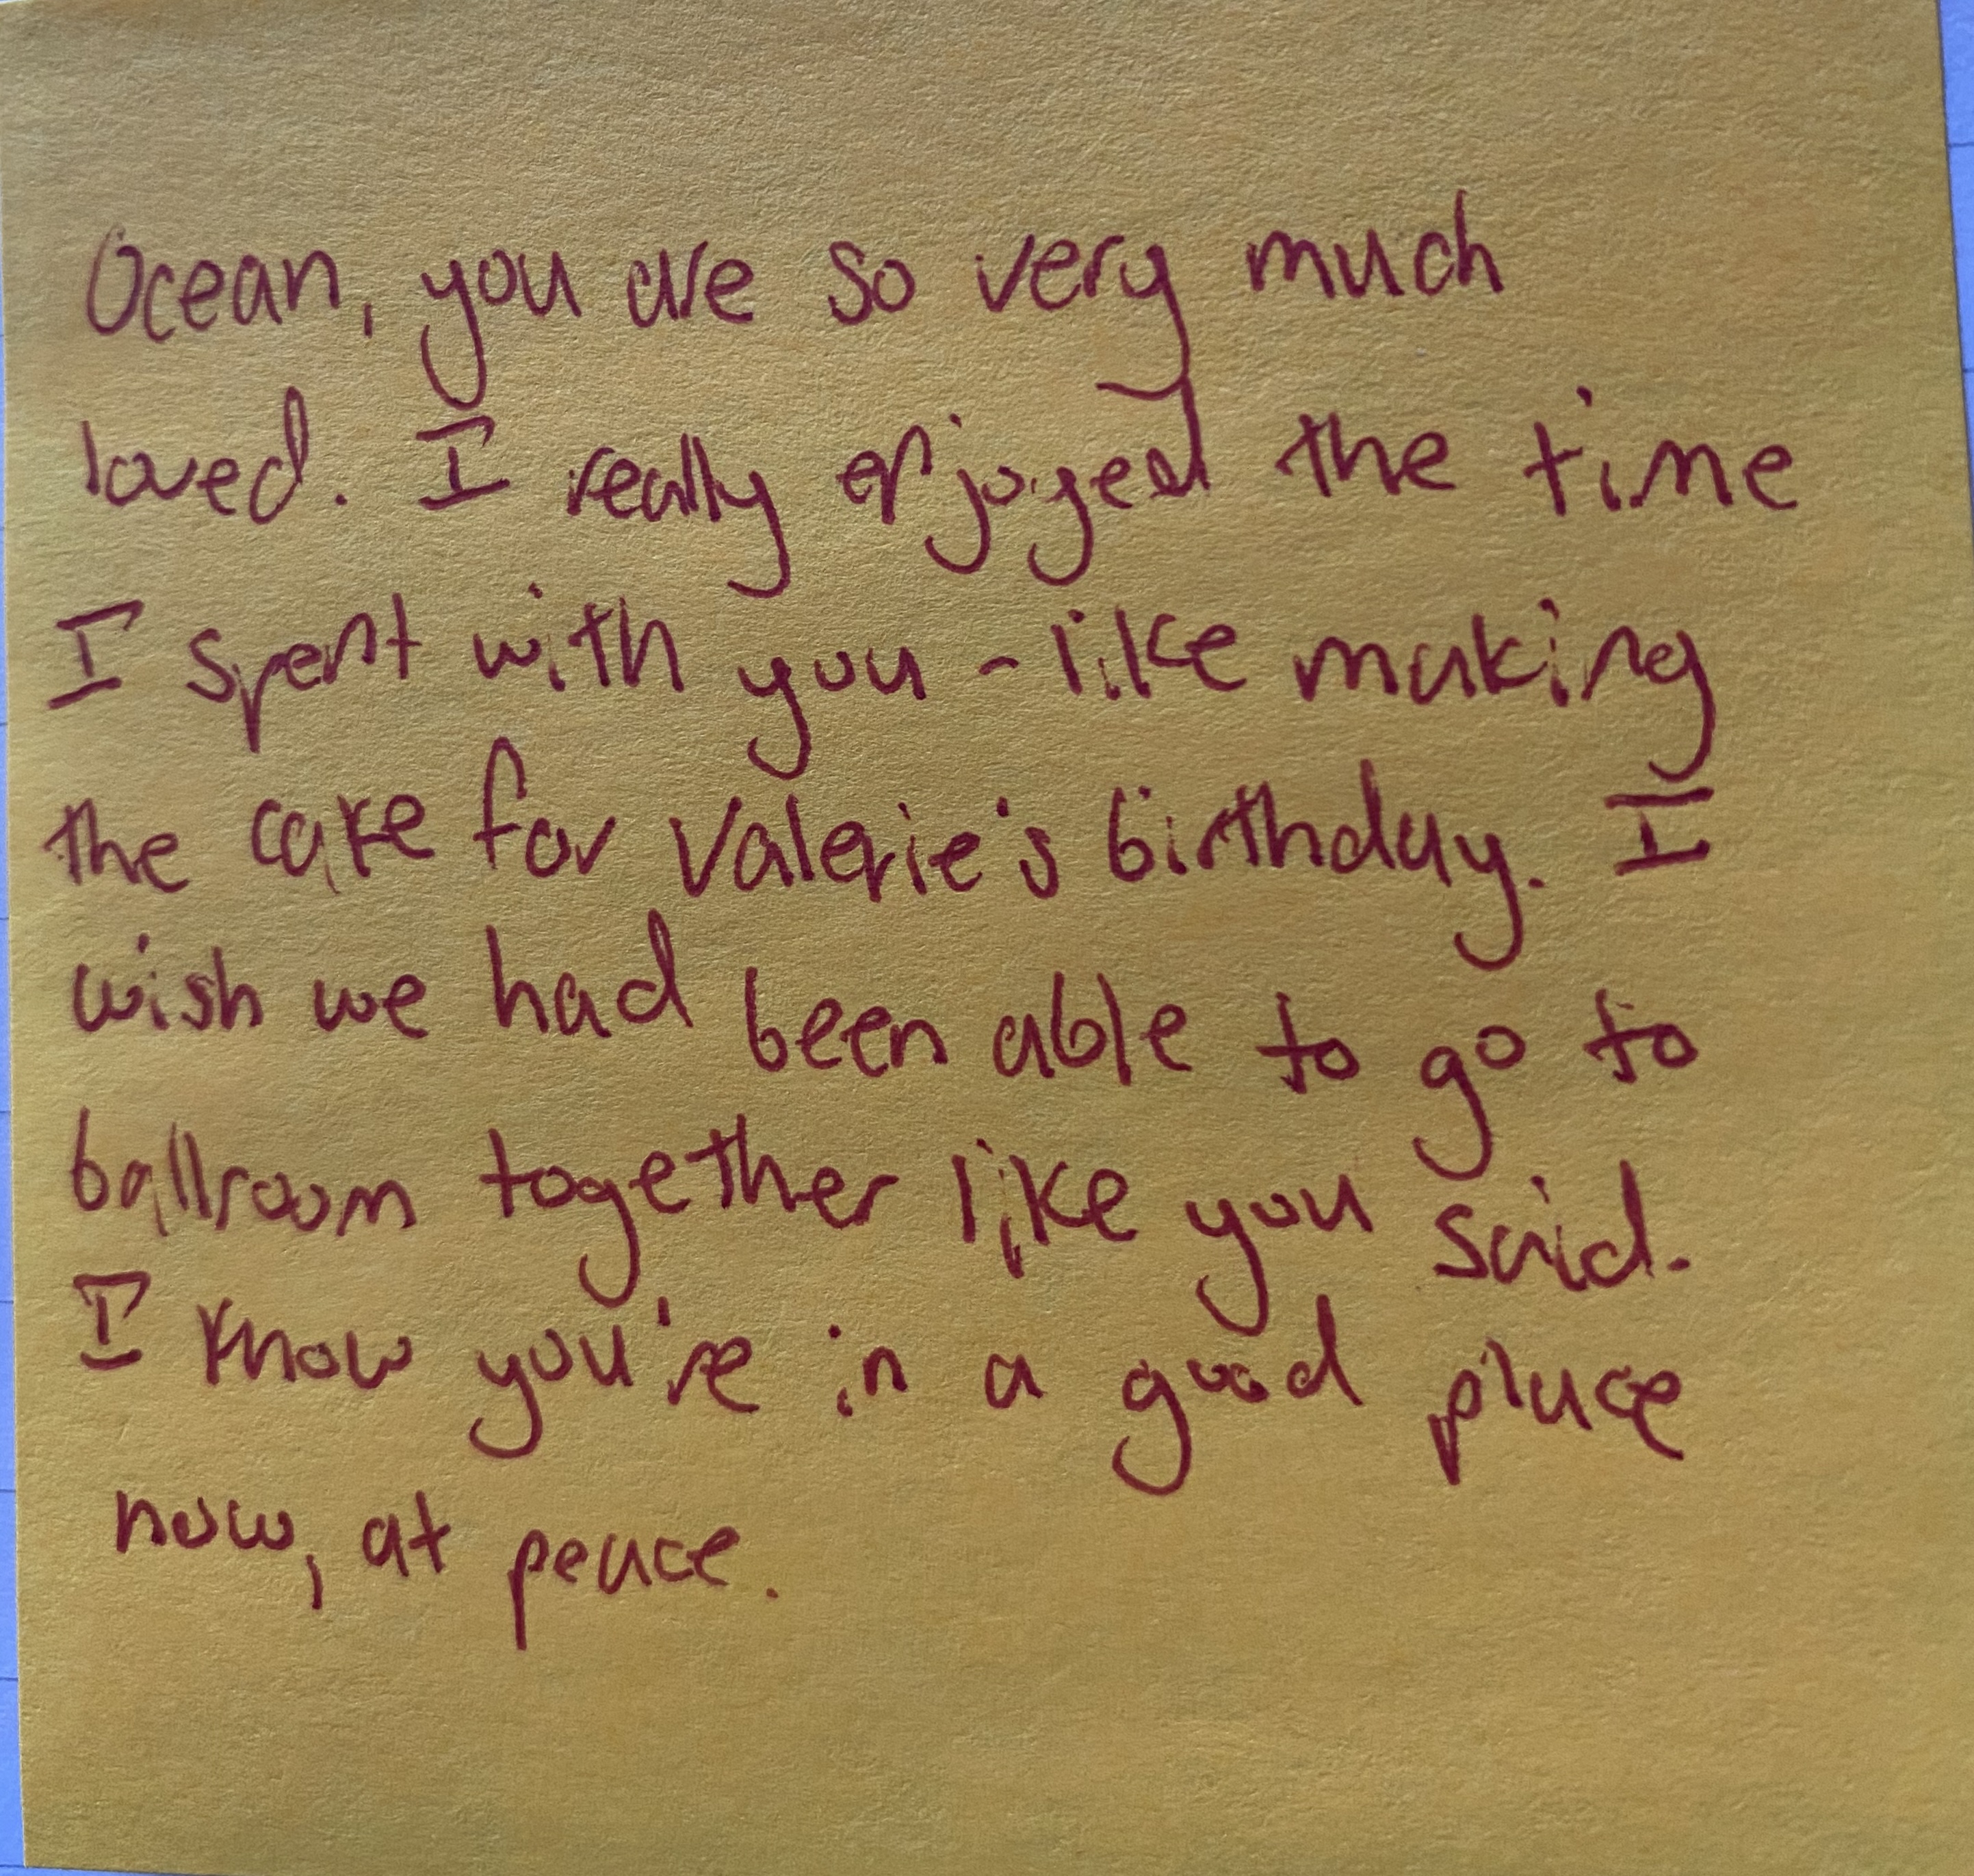 Ocean, you are so very much
loved. I really enjoyed the time
I spent with you - like making
the cake for Valerie's birthday. I
wish we had been able to go to
ballroom together like you said.
I know you're in a good place
now, at peace.